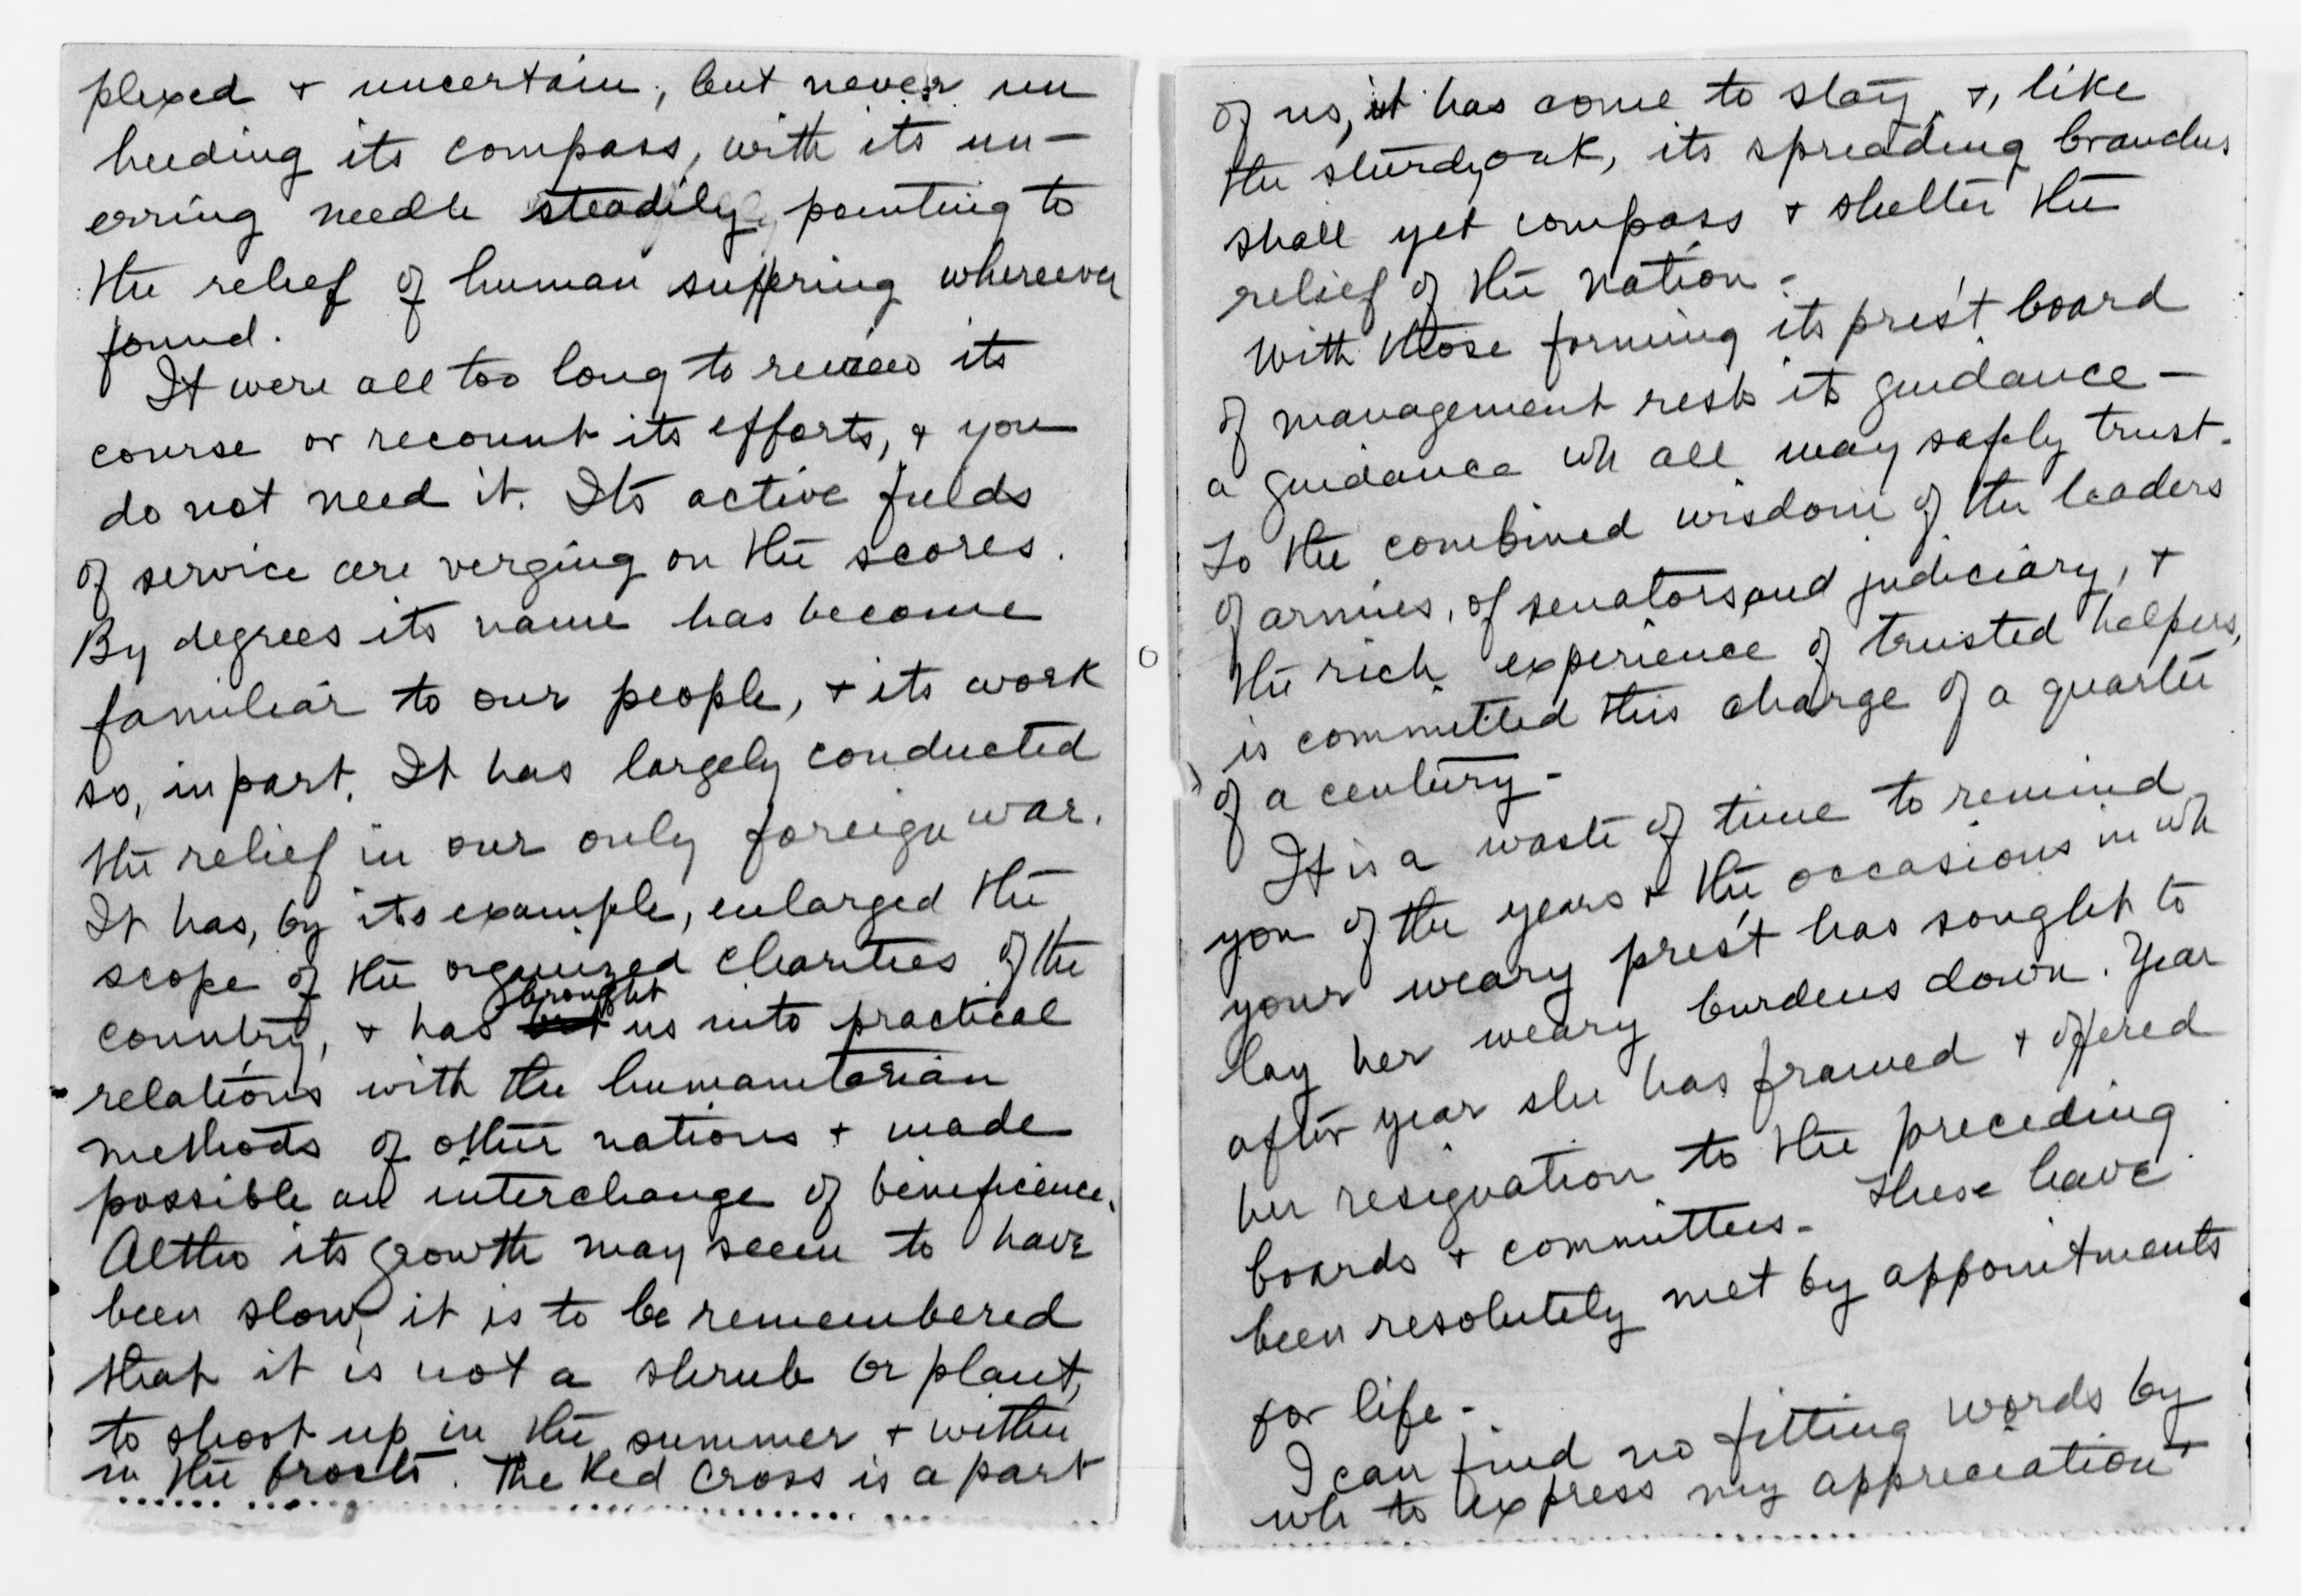 plexed + uncertain, but never un
heeding its compass, with its un-
erring needle steadily pointing to
the relief of human suffering whereever
found.
It were all too long to review its
course or recount its efforts, + you
do not need it. Its active fields
of service are verging on the scores.
By degrees its name has become
familiar to our people, + its work
so, in part. It has largely conducted
the relief in our only foreign war.
It has, by its example, enlarged the
scope of the organized charities of the
country, + has brought us into practical
relations with the humanitarian
methods of other nations + made
possible an interchange of beneficence.
Altho its growth may seem to have
been slow, it is to be remembered
that it is not a shrub or plant,
to shoot up in the summer + wither
in the frosts. The Red Cross is a part
of us, it has come to stay +, like
the sturdy oak, its spreading branches
shall yet compass + shelter the
relief of the nation -
With those forming its pres't board
of management rests its guidance -
a guidance wh all may safely trust -
To the combined wisdom of the leaders
of armies, of senators, and judiciary, +
the rich experience of trusted helpers,
is committed this charge of a quarter
of a century -
It is a waste of time to remind
you of the years + the occasions in wh
your weary pres't has sought to
lay her weary burdens down. Year
after year she has framed + offered
her resignation to the preceding
boards + committees - These have
been resolutely met by appointments
for life -
I can find no fitting words by
wh to express my appreciation